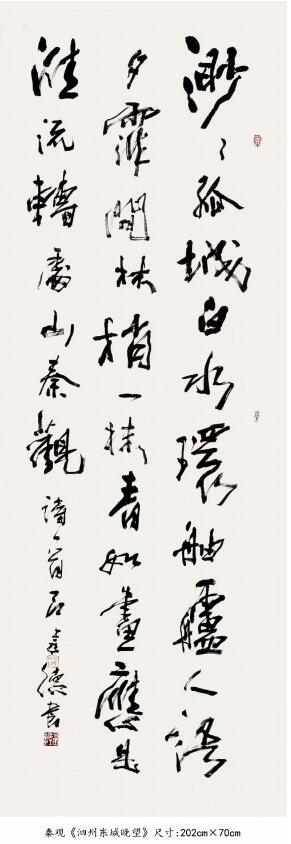 渺〻孤城白水環舳艫人語
夕霏間林梢一抹青如畫應是
淮流轉處山秦觀詩一首書
秦观《泗州东城晚望》尺寸:202cm×70cm